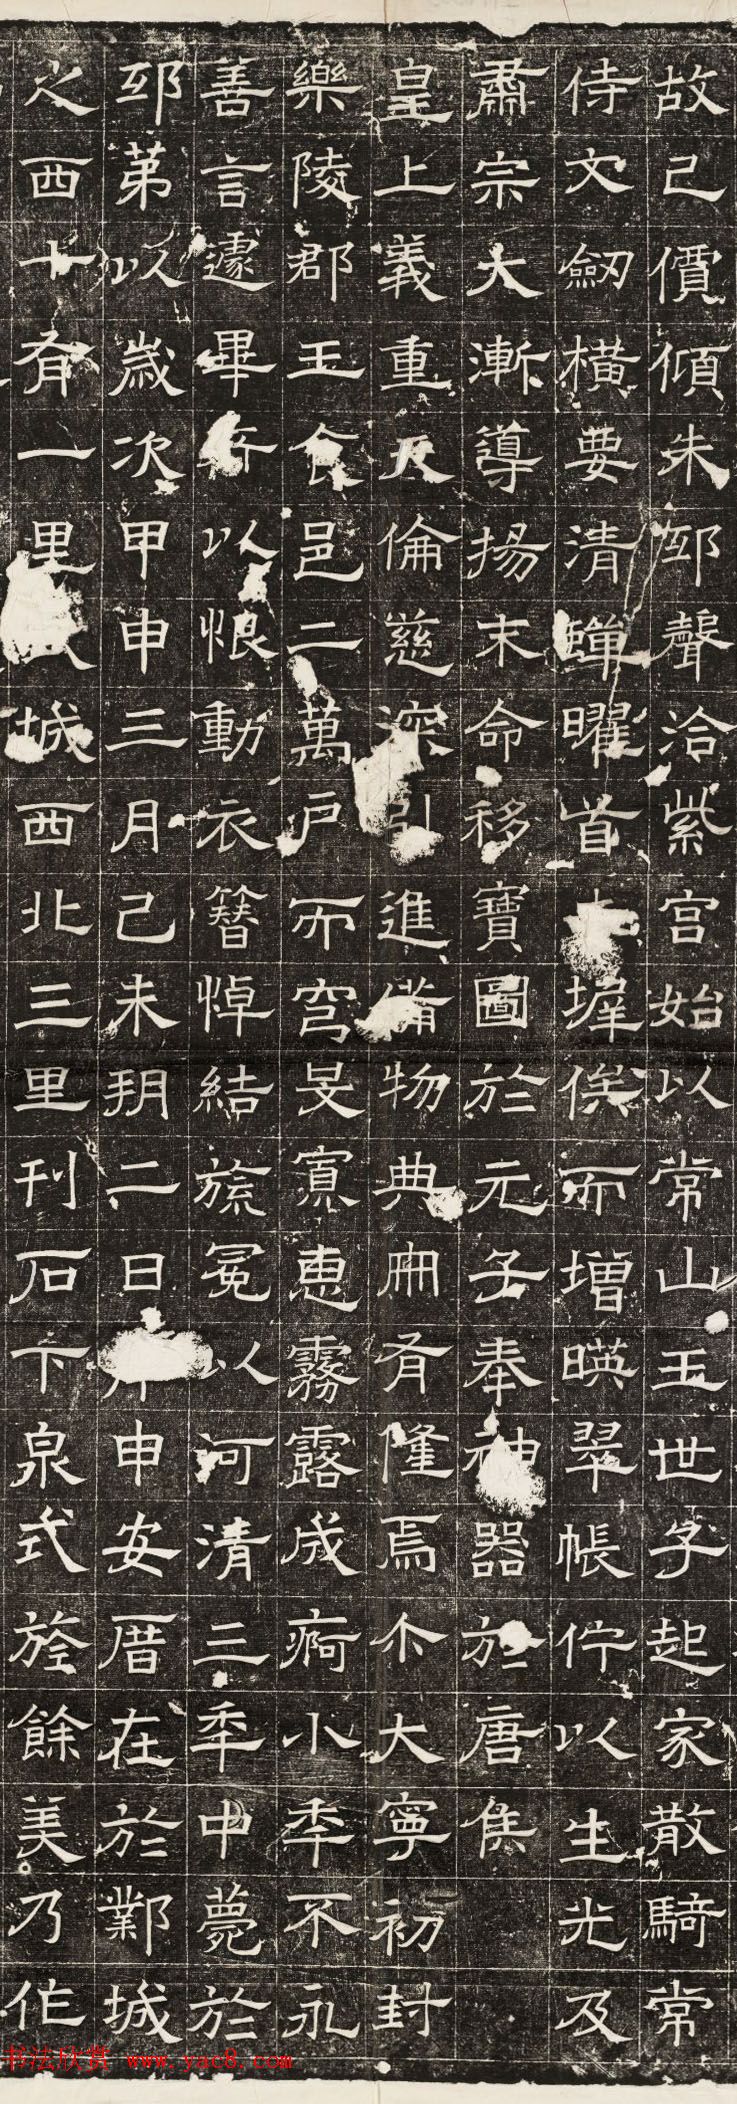 故已價傾朱邸聲洽紫宮始以常山王世子起家散騎常
侍文劒橫要清蟬曜首墀俟而增暎翠帳佇以生光及
肅宗大漸導揚末命移寶圖於元子奉神器於唐侯
皇上義重天倫慈深引進備物典冊有隆焉尒大寧初封
樂陵郡王食邑二萬戶而穹旻寡惠霧露成痾小年不永
善言遽畢以恨動衣簪悼結旒冕以河清三年中薨於
邸第以歲次甲申三月己未朔二日申安厝在於鄴城
之西十有一里城西北三里刊石下泉式旌餘美乃作
书法欣赏 www.yac8.com